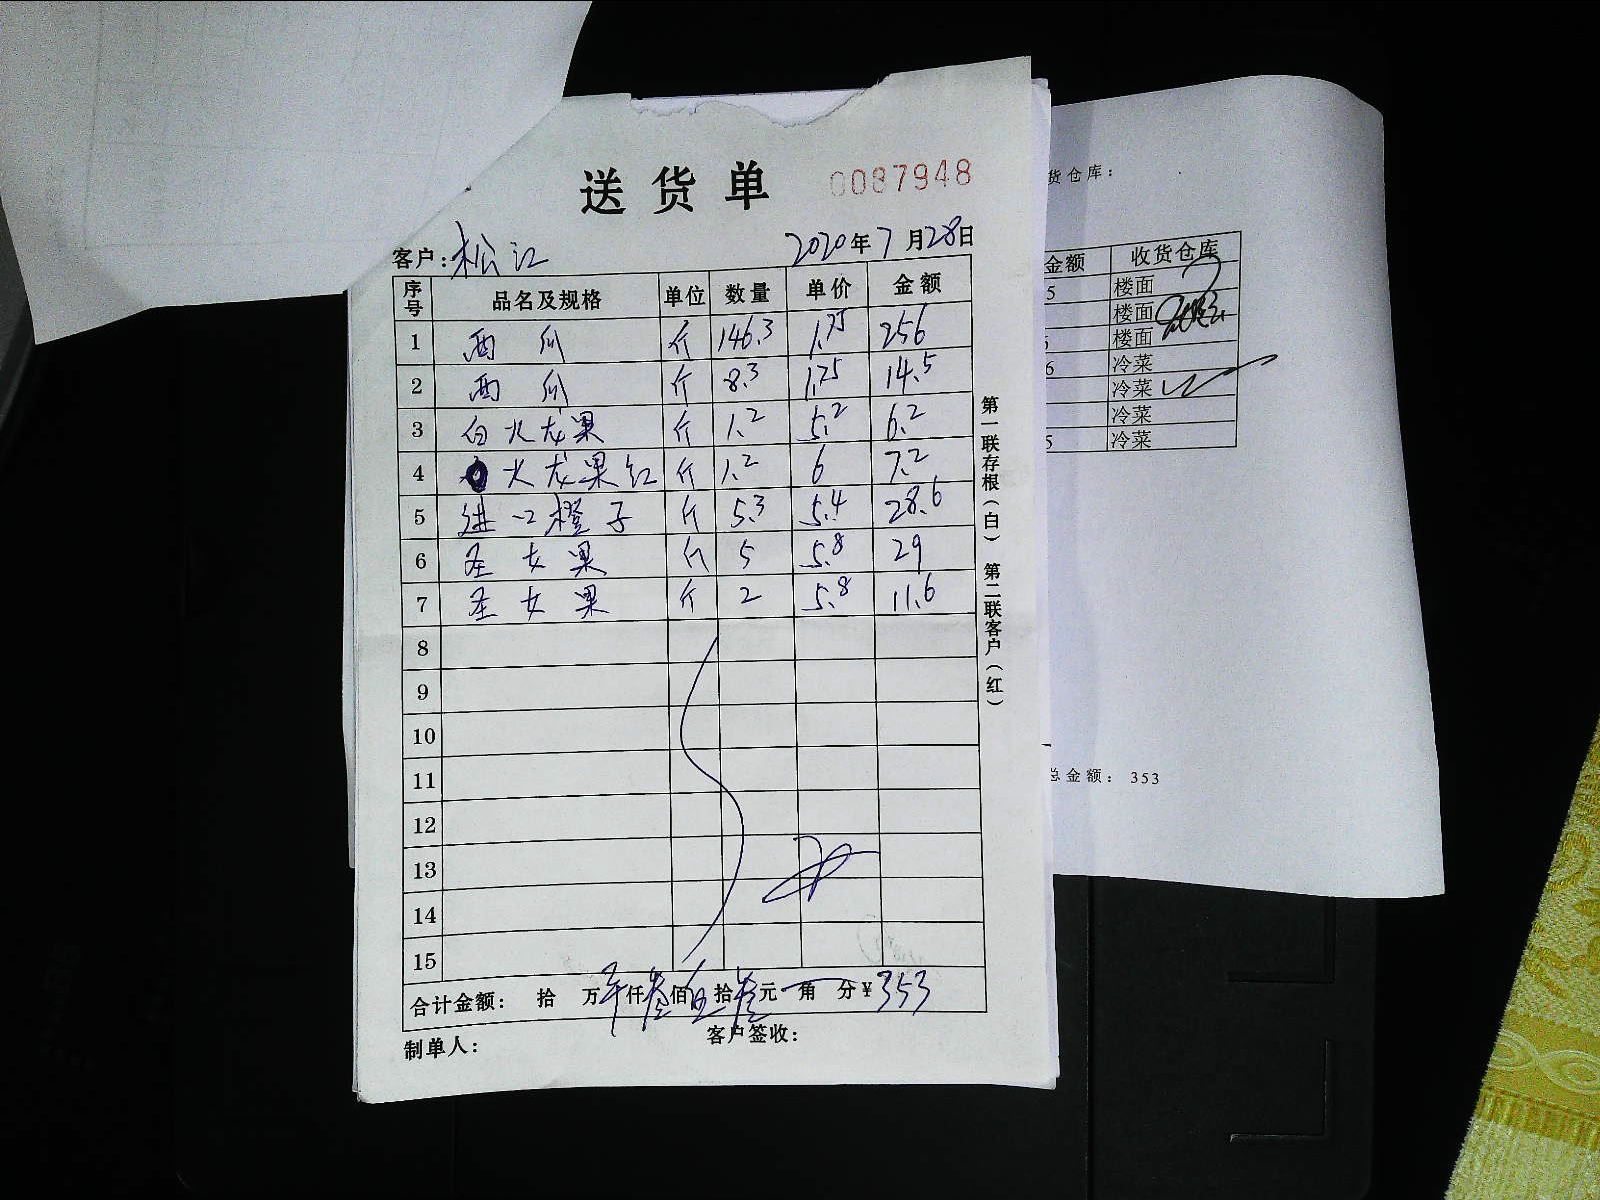 送货单 0087948
客户：松江 2020年7月28日
序号 品名及规格 单位 数量 单价 金额
1 西瓜 斤 146.3 1.75 256
2 西瓜 斤 8.3 1.75 14.5
3 白火龙果 斤 1.2 5.2 6.2
4 火龙果红 斤 1.2 6 7.2
5 进口橙子 斤 5.3 5.4 28.6
6 圣女果 斤 5 5.8 29
7 圣女果 斤 2 5.8 11.6
8
9
10
11
12
13
14
15
合计金额： 拾 万 仟叁佰伍拾叁元 角 分￥353
制单人： 客户签收：
第一联存根（白） 第二联客户（红）
货仓库：
金额 收货仓库
5 楼面
楼面
5 楼面
6 冷菜
冷菜
冷菜
5 冷菜
总金额：353